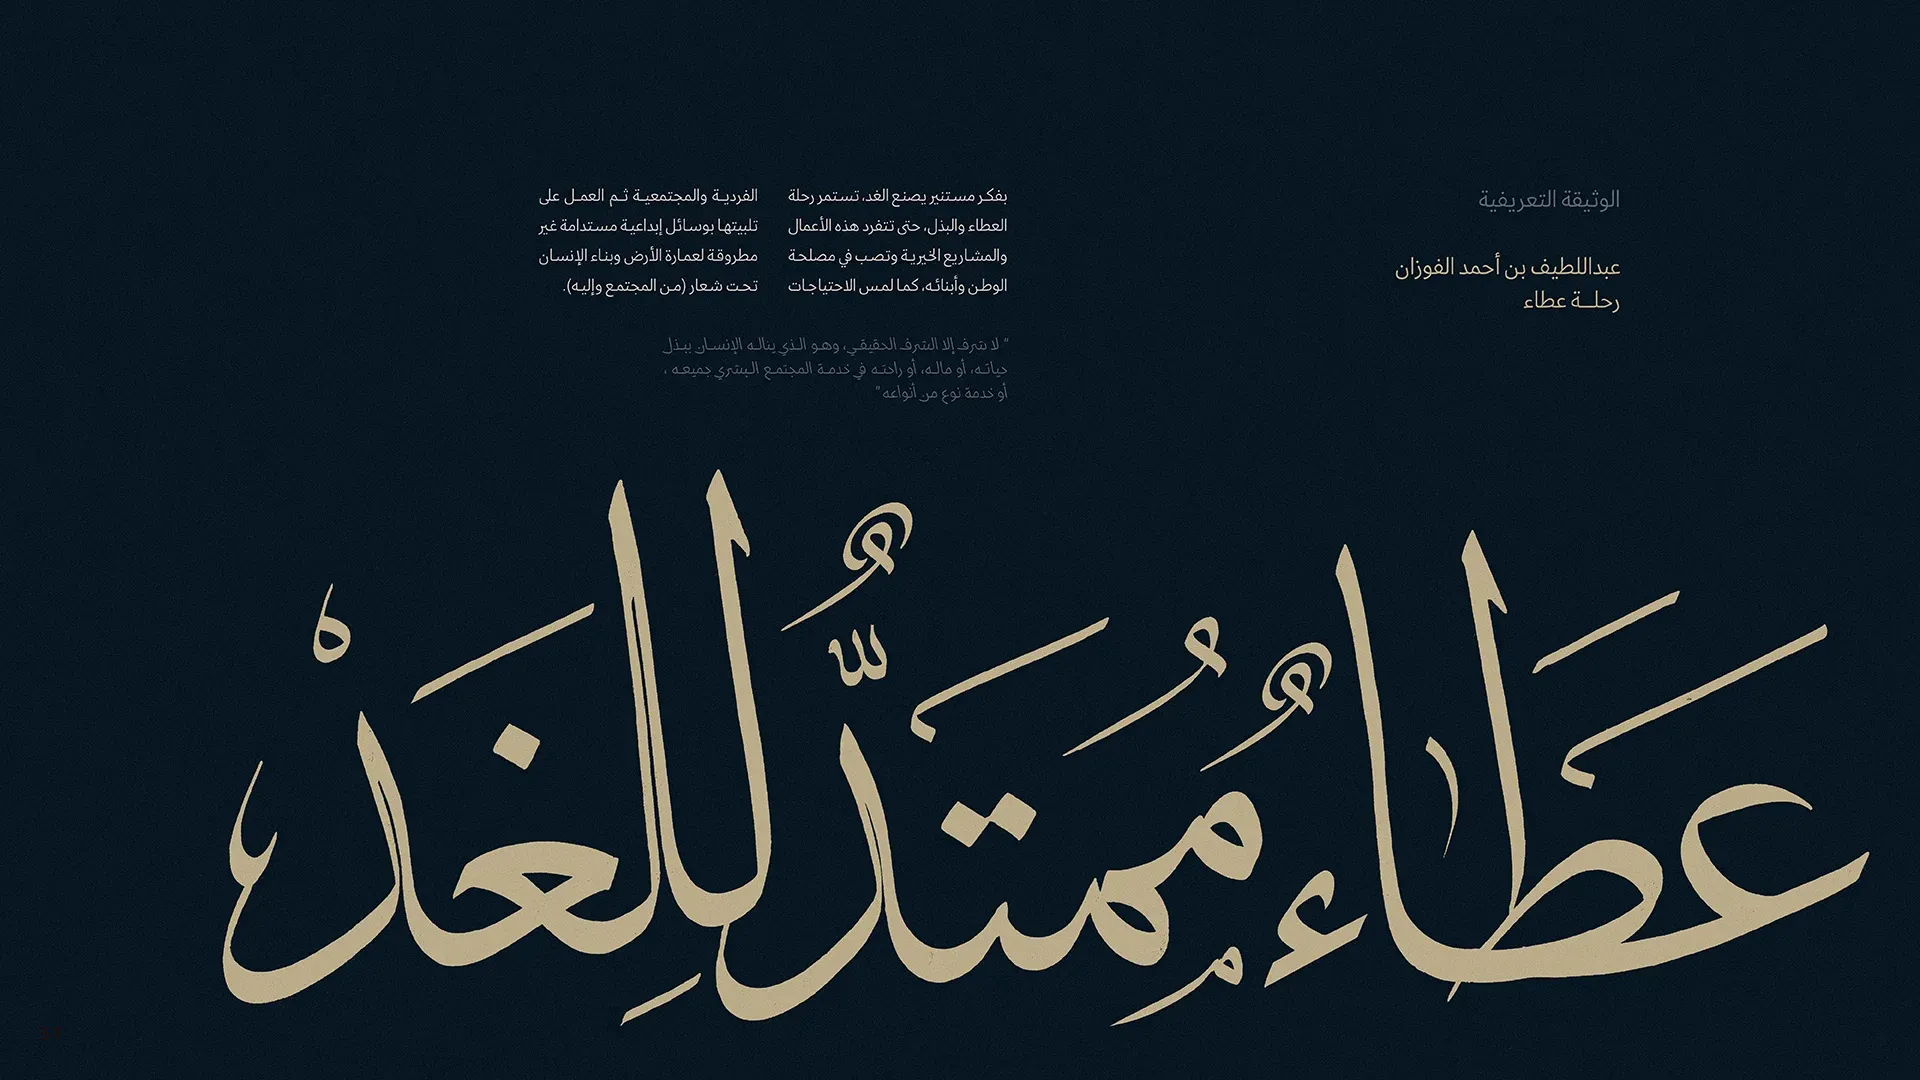 الوثيقة التعريفية
عبداللطيف بن أحمد الفوزان
رحلــة عطاء
بفكر مستنير يصنع الغد، تستمر رحلة
العطاء والبذل، حتى تتفرد هذه الأعمال
والمشاريع الخيرية وتصب في مصلحة
الوطن وأبنائه، كما لمس الاحتياجات
الفردية والمجتمعية ثم العمل على
تلبيتها بوسائل إبداعية مستدامة غير
مطروقة لعمارة الأرض وبناء الإنسان
تحت شعار (من المجتمع وإليه).
" لا شرف إلا الشرف الحقيقي، وهو الذي يناله الإنسان ببذل
حياته، أو ماله، أو راحته في خدمة المجتمع البشري جميعه ،
أو خدمة نوع من أنواعه "
عَطَاءٌ مُمتَدٌّ لِلغَدْ